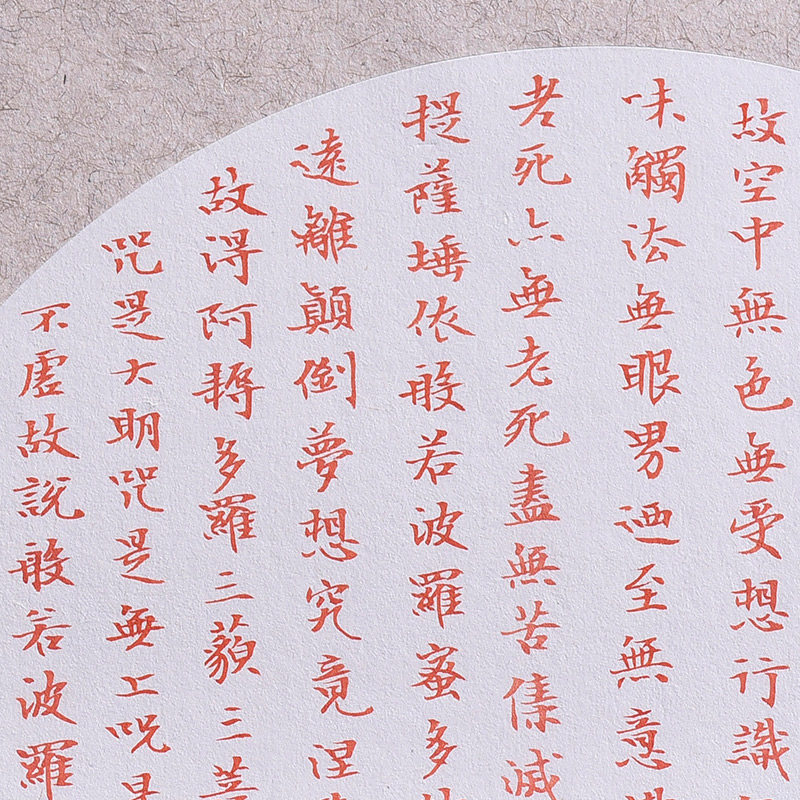 故空中無色無受想行識
味觸法無眼界迺至無意
老死亦無老死盡無苦集滅
提薩埵依般若波羅蜜多
遠離顛倒夢想究竟涅
故得阿耨多羅三藐三菩
咒是大明咒是無上咒是
不虛故說般若波羅